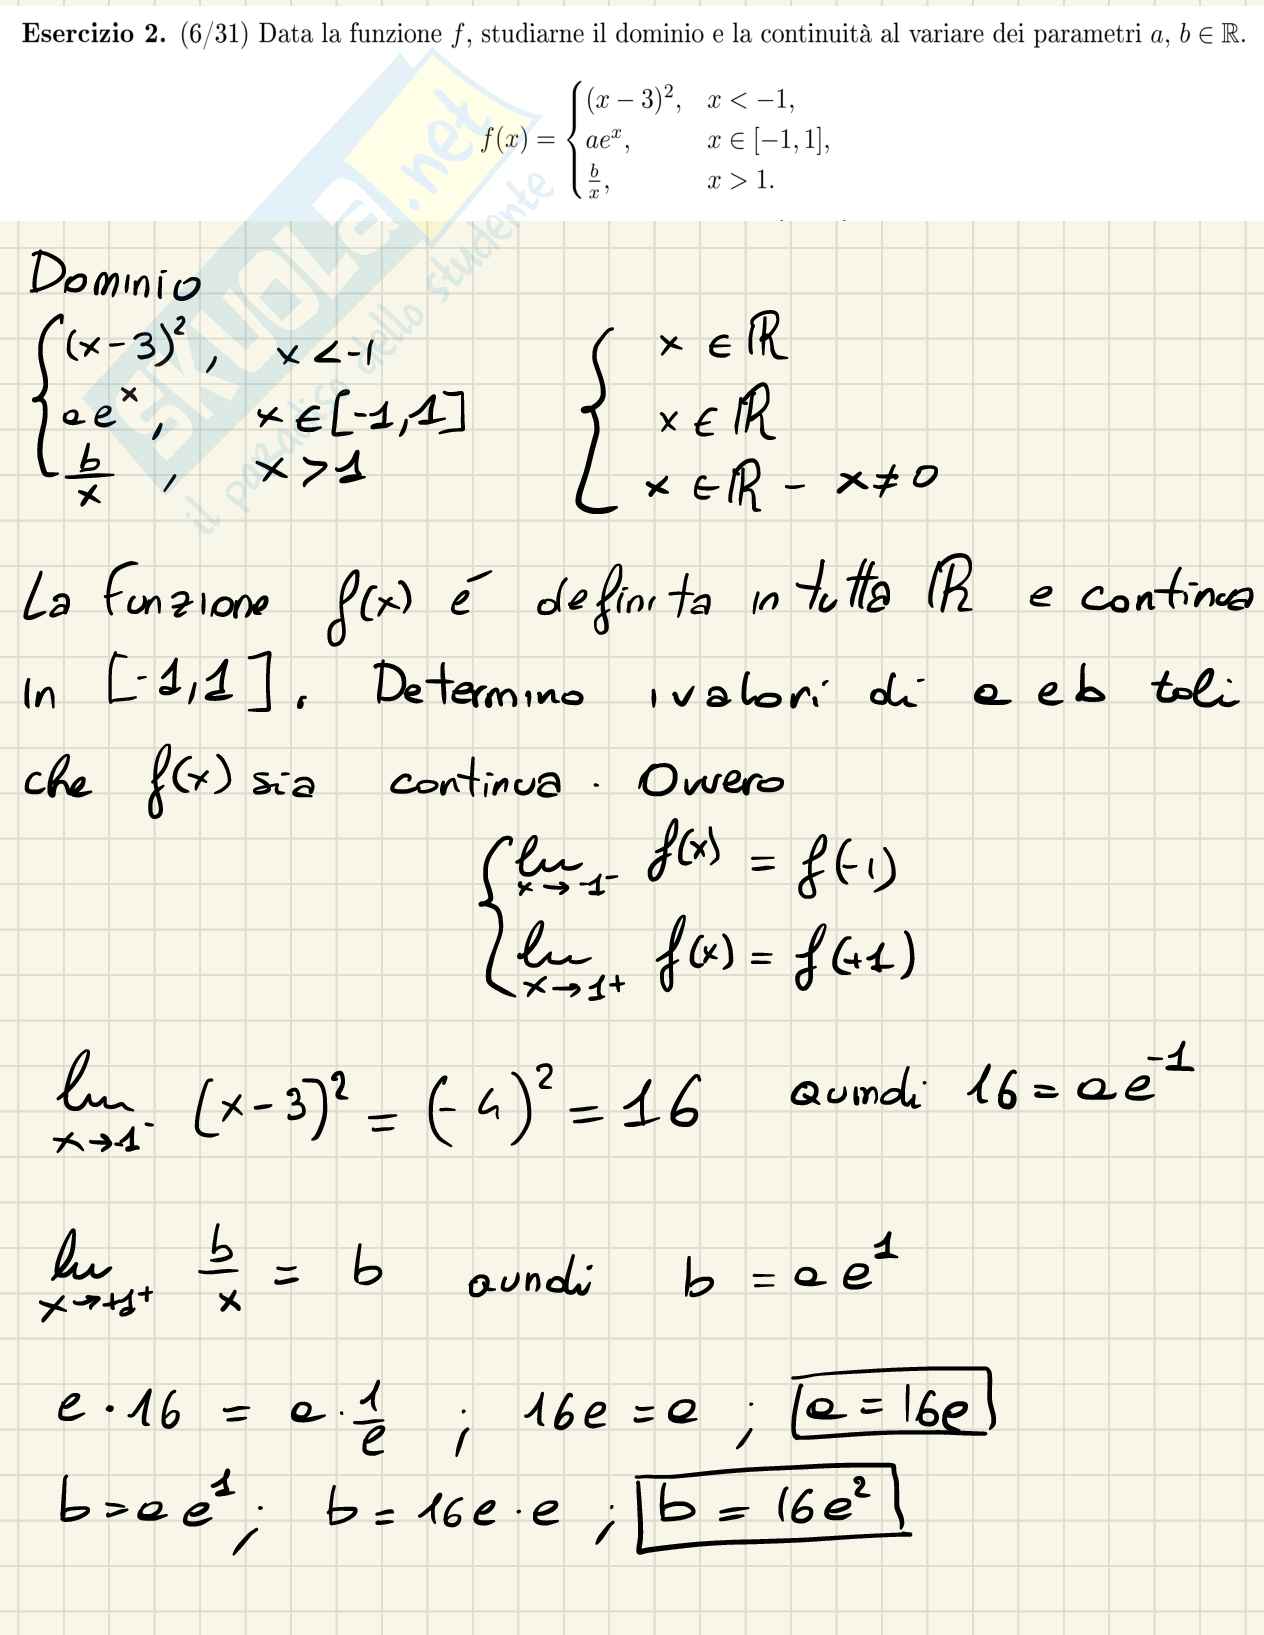 Esercizio 2. (6/31) Data la funzione f, studiarne il dominio e la continuità al variare dei parametri a, b ∈ ℝ.
(x − 3)², x < −1,
f(x) = { aeˣ, x ∈ [−1, 1],
b/x, x > 1.
SKUOLA.net
il paradiso dello studente
Dominio
{ (x-3)², x<-1 { x ∈ ℝ
aeˣ, x∈[-1,1] x ∈ ℝ
b/x, x>1 x ∈ ℝ - x≠0
La funzione f(x) é definita in tutta ℝ e continua
in [-1,1]. Determino i valori di a e b tali
che f(x) sia continua. Ovvero
{ lim x→-1⁻ f(x) = f(-1)
lim x→1⁺ f(x) = f(+1)
lim x→-1⁻ (x-3)² = (-4)² = 16 quindi 16 = ae⁻¹
lim x→+1⁺ b/x = b quindi b = ae¹
e·16 = a·1/e ; 16e = a ; a = 16e
b=ae¹; b = 16e·e ; b = 16e²